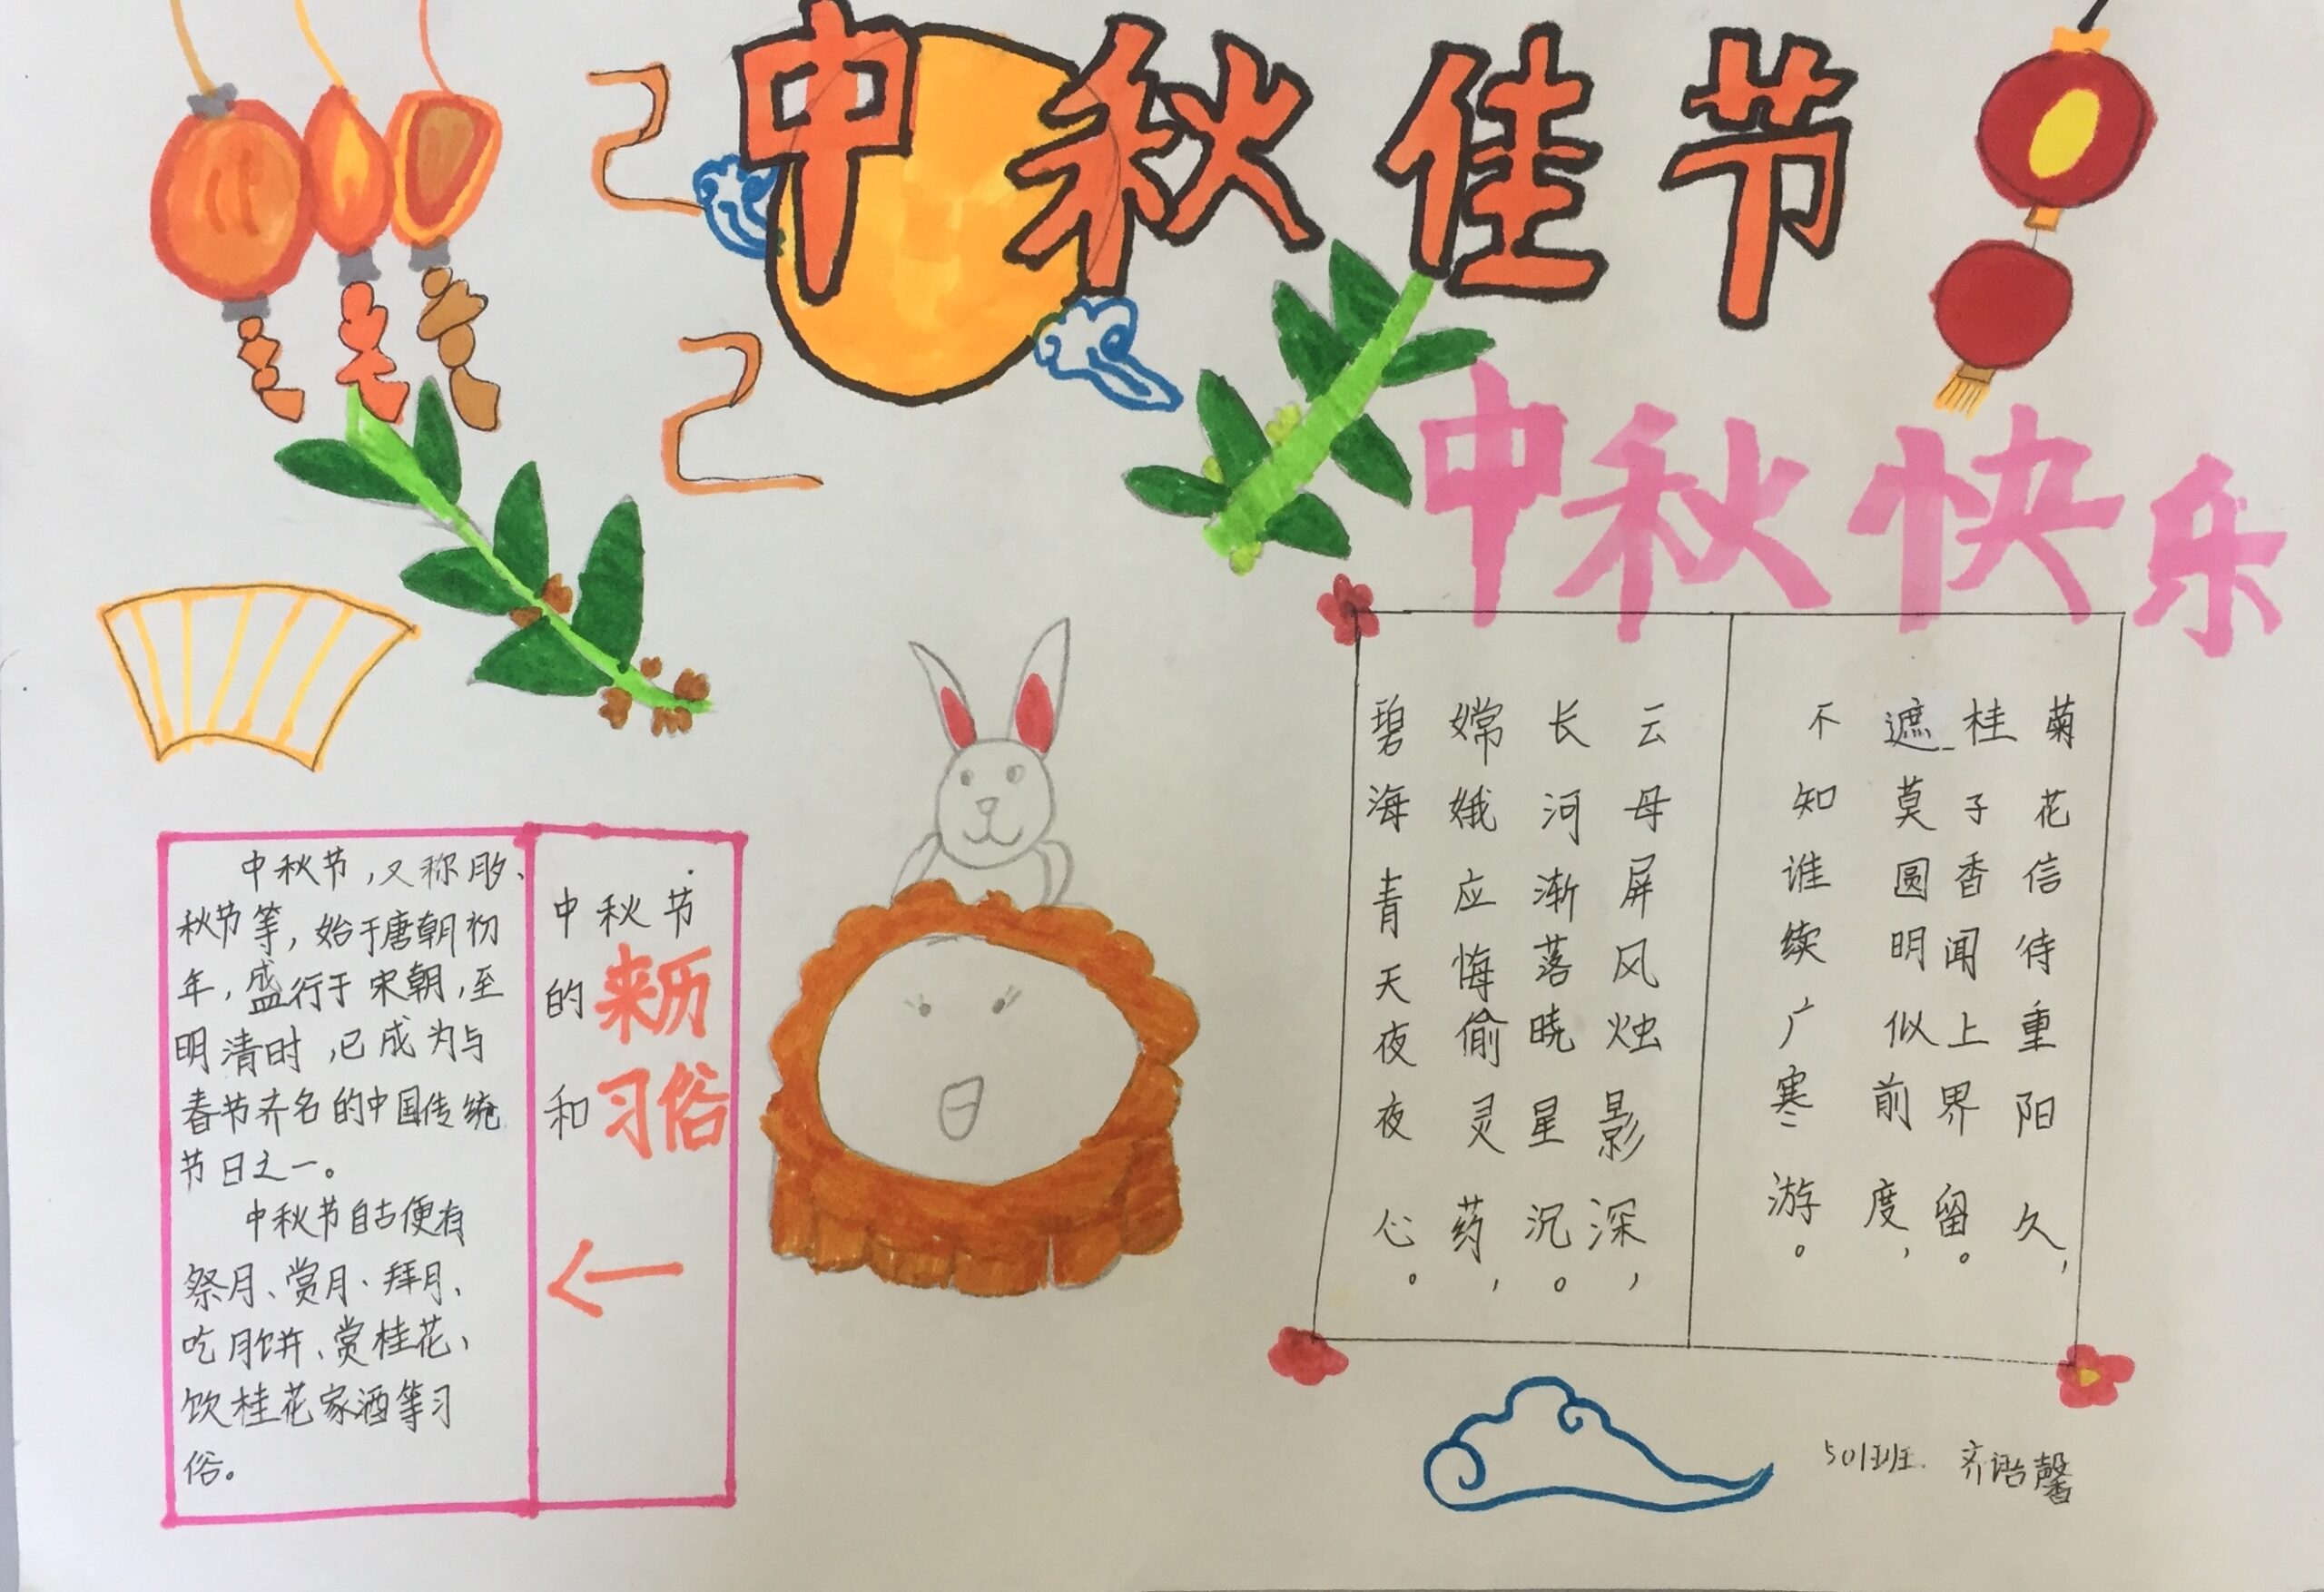 中秋佳节
中秋快乐
中秋节，又称月夕、
秋节等，始于唐朝初
年，盛行于宋朝，至
明清时，已成为与
春节齐名的中国传统
节日之一。
中秋节自古便有
祭月、赏月、拜月、
吃月饼、赏桂花、
饮桂花家酒等习
俗。
中秋节
的来历
和习俗
菊花信待重阳久，
桂子香闻上界留。
遮莫圆明似前度，
不知谁续广寒游。
云母屏风烛影深，
长河渐落晓星沉。
嫦娥应悔偷灵药，
碧海青天夜夜心。
501班 齐馨